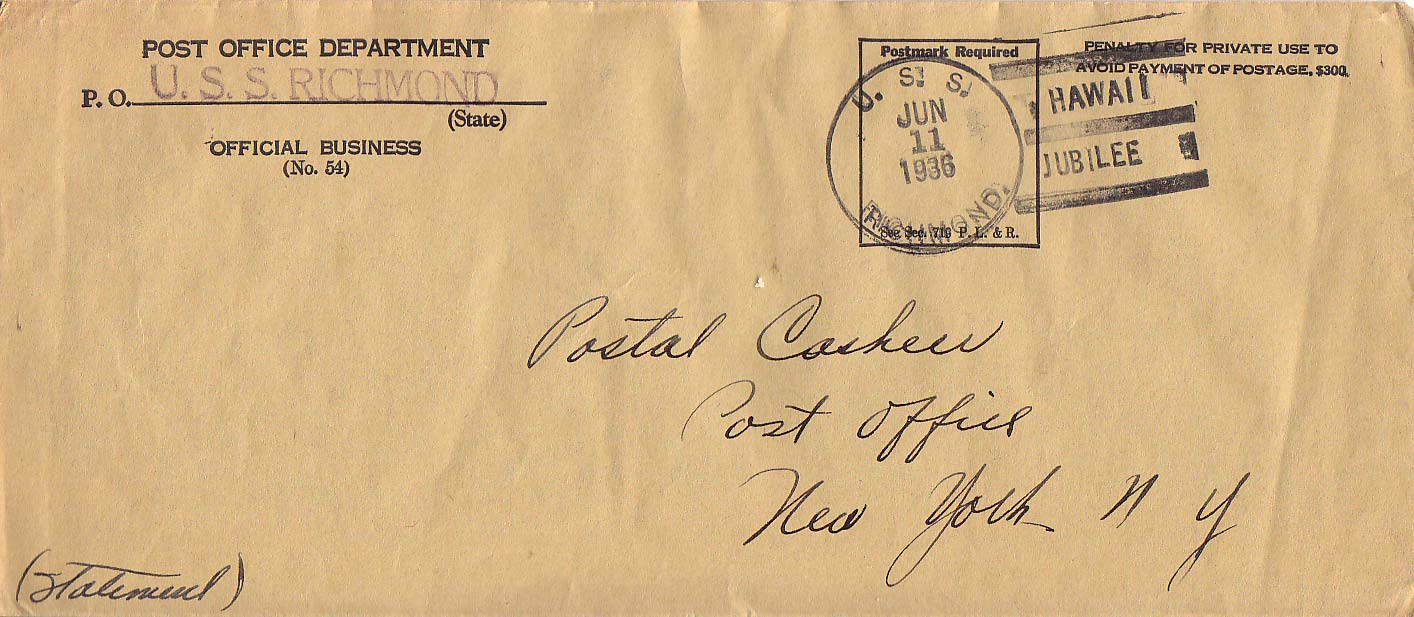 POST OFFICE DEPARTMENT
P. O. U. S. S. RICHMOND
(State)
OFFICIAL BUSINESS
(No. 54)
Postmark Required
U. S. S.
JUN
11
1936
RICHMOND
See Sec. 719 P. L. & R.
PENALTY FOR PRIVATE USE TO
AVOID PAYMENT OF POSTAGE, $300.
HAWAII
JUBILEE
Postal Cashier
Post Office
New York N Y
(Statement)